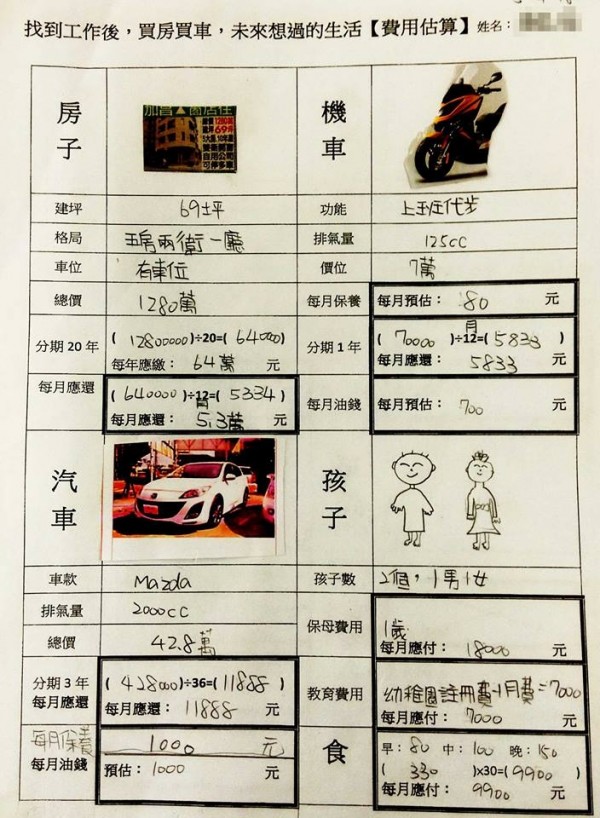 找到工作後，買房買車，未來想過的生活【費用估算】姓名：
房子
加昌 圖居住
69坪
機車
建坪 69坪
功能 上班代步
格局 五房兩衛一廳
排氣量 125cc
車位 有車位
價位 7萬
總價 1280萬
每月保養 每月預估： 80 元
分期 20 年 ( 12800000 )÷20=( 640000 )
每年應繳： 64萬 元
分期 1 年 ( 70000 )÷12月=( 5833 )
每月應還： 5833 元
每月應還 ( 640000 )÷12月=( 5334 )
每月應還： 5.3萬 元
每月油錢 每月預估： 700 元
汽車
孩子
車款 Mazda
孩子數 2個，1男1女
排氣量 2000cc
總價 42.8萬
保母費用 1歲
每月應付： 18000 元
分期 3 年 ( 428000 )÷36=( 11888 )
每月應還 每月應還： 11888 元
教育費用 幼稚園註冊費+月費=7000
每月應付： 7000 元
每月保養 1000 元
每月油錢 預估： 1000 元
食 早： 80 中： 100 晚： 150
( 330 )x30=( 9900 )
每月應付： 9900 元